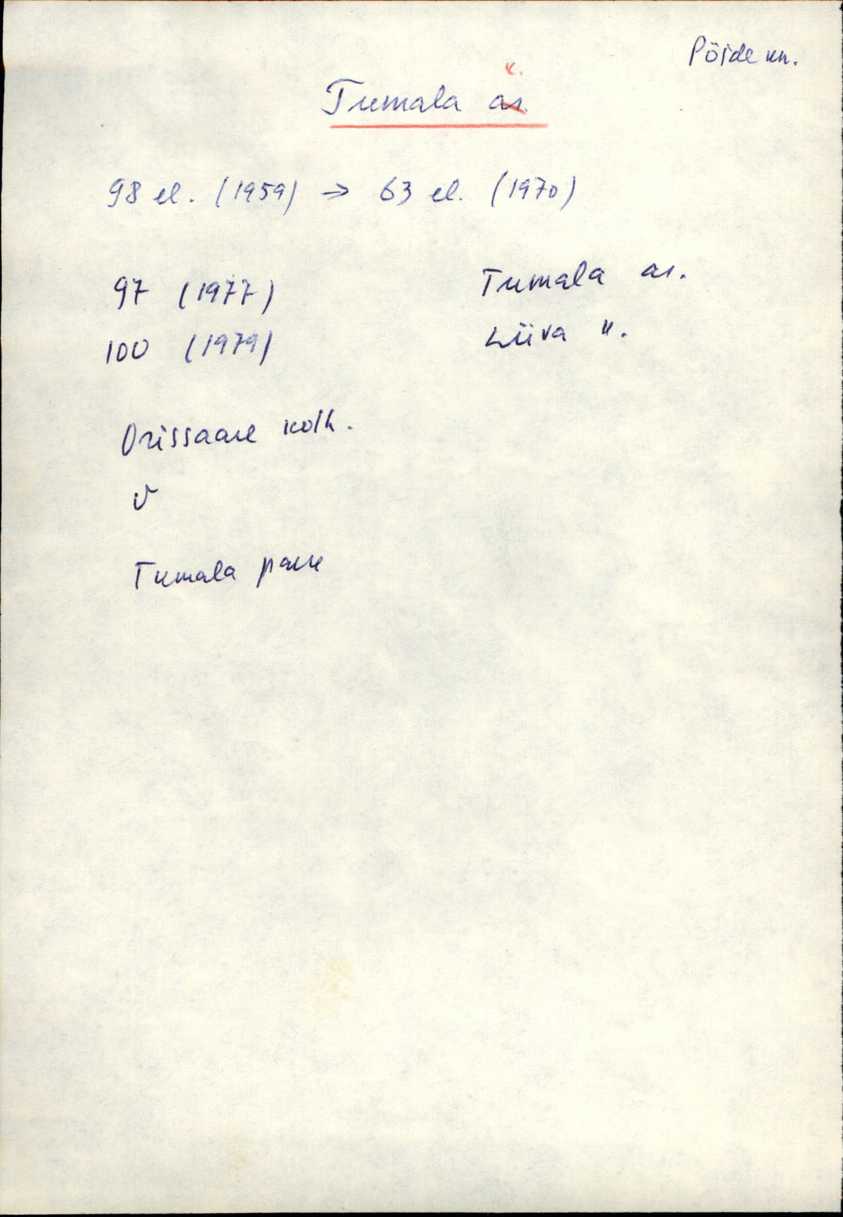 Pöide kn.
k.
Tumala as
98 el. (1959) → 63 el. (1970)
97 (1977) Tumala as.
100 (1979) Liiva k.
Orissaare kolh.
V
Tumala